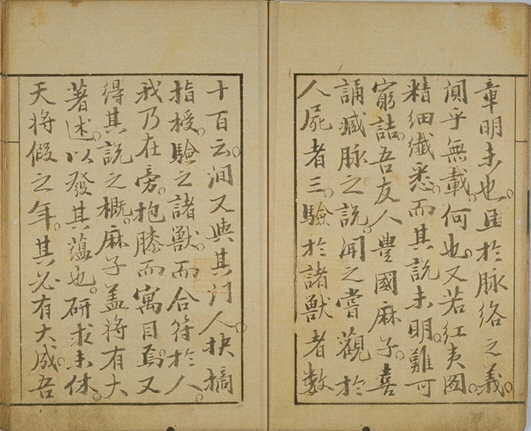 章明未也。且於脉络之義。
闃乎無載。何也。又若紅夷圖
精細纖悉。而其説未明。難可
窮詰。吾友人豊國麻子。喜
誦臓脉之説。聞之嘗觀於
人屍者三。驗於諸獣者数
十百云。間又與其门人。抉摘
指授。驗之諸獣。而合符於人。
我乃在旁。抱膝而寓目焉。又
得其説之概。麻子蓋将有大
著述。以發其蘊也。研求未休。
天将假之年。其必有大成。吾